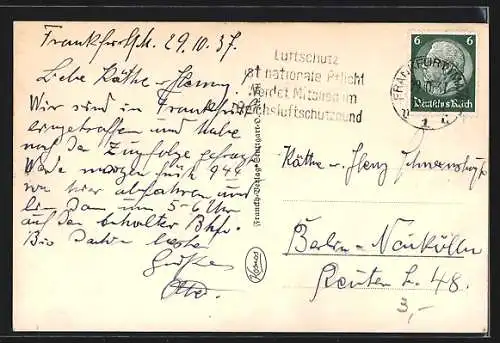 Frankfurt/M. 29.10.37.
Liebe Käthe – Henny.
Wir sind in Frankfurt
eingetroffen und habe
nach der Zugfolge gefragt
Werde morgen früh 9 44
von hier abfahren und
bin dann um 5–6 Uhr
auf den Bhf.
Bis dahin beste
Grüße
Luftschutz
ist nationale Pflicht
Werdet Mitglied im
Reichsluftschutzbund
FRANKFURT (MAIN)
6 6
Deutsches Reich
Franckh-Verlag Stuttgart-O.
Kosmos
Käthe – Henz
Berlin-Neukölln
Reuter 48.
3,-